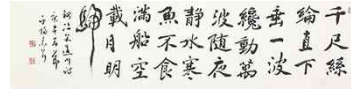 千尺絲
綸直下
垂一波
纔動萬
波隨夜
靜水寒
魚不食
滿船空
載月明
歸